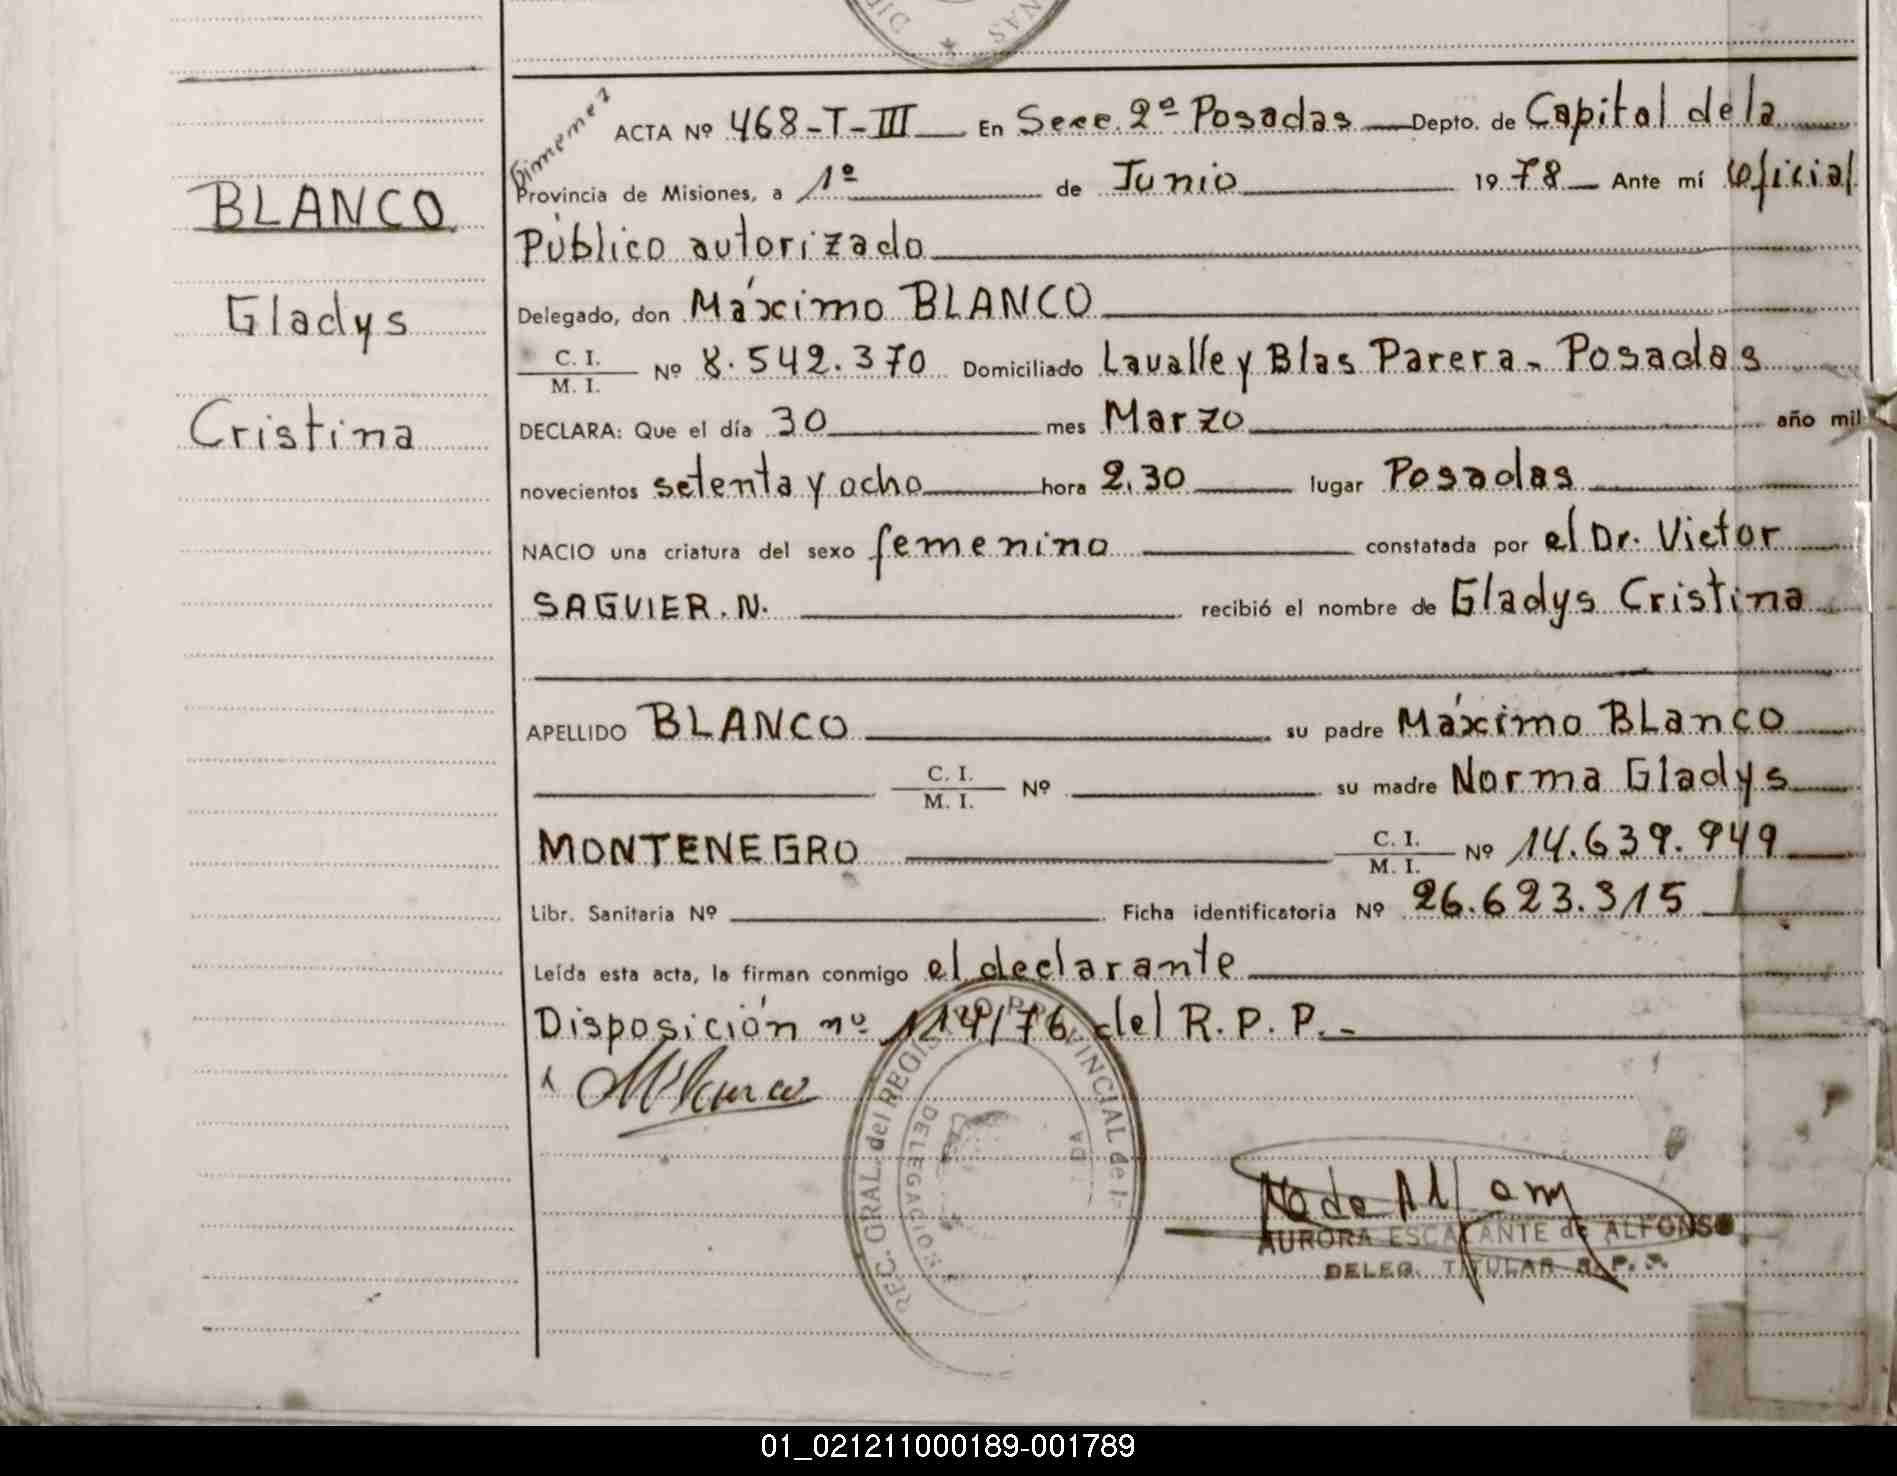 NAS
DIR
BLANCO
Gladys
Cristina
Gimenez
ACTA Nº 468-T-III En Secc. 2ª Posadas Depto. de Capital de la
Provincia de Misiones, a 1º de Junio 1978 Ante mí oficial
Público autorizado
Delegado, don Máximo BLANCO
C. I.
M. I. Nº 8.542.370 Domiciliado Lavalle y Blas Parera - Posadas
DECLARA: Que el día 30 mes Marzo año mil
novecientos setenta y ocho hora 2,30 lugar Posadas
NACIO una criatura del sexo femenino constatada por el Dr. Victor
SAGUIER. N. recibió el nombre de Gladys Cristina
APELLIDO BLANCO su padre Máximo BLanco
C. I.
M. I. Nº su madre Norma Gladys
MONTENEGRO C. I.
M. I. Nº 14.639.949
Libr. Sanitaria Nº Ficha identificatoria Nº 26.623.315
Leída esta acta, la firman conmigo el declarante
Disposición nº 114/76 del R. P. P. -
GRAL. del REGISTRO PROVINCIAL de l
DELEGACION
AURORA ESCALANTE de ALFONSO
DELEG. TITULAR R. P. P.
01_021211000189-001789